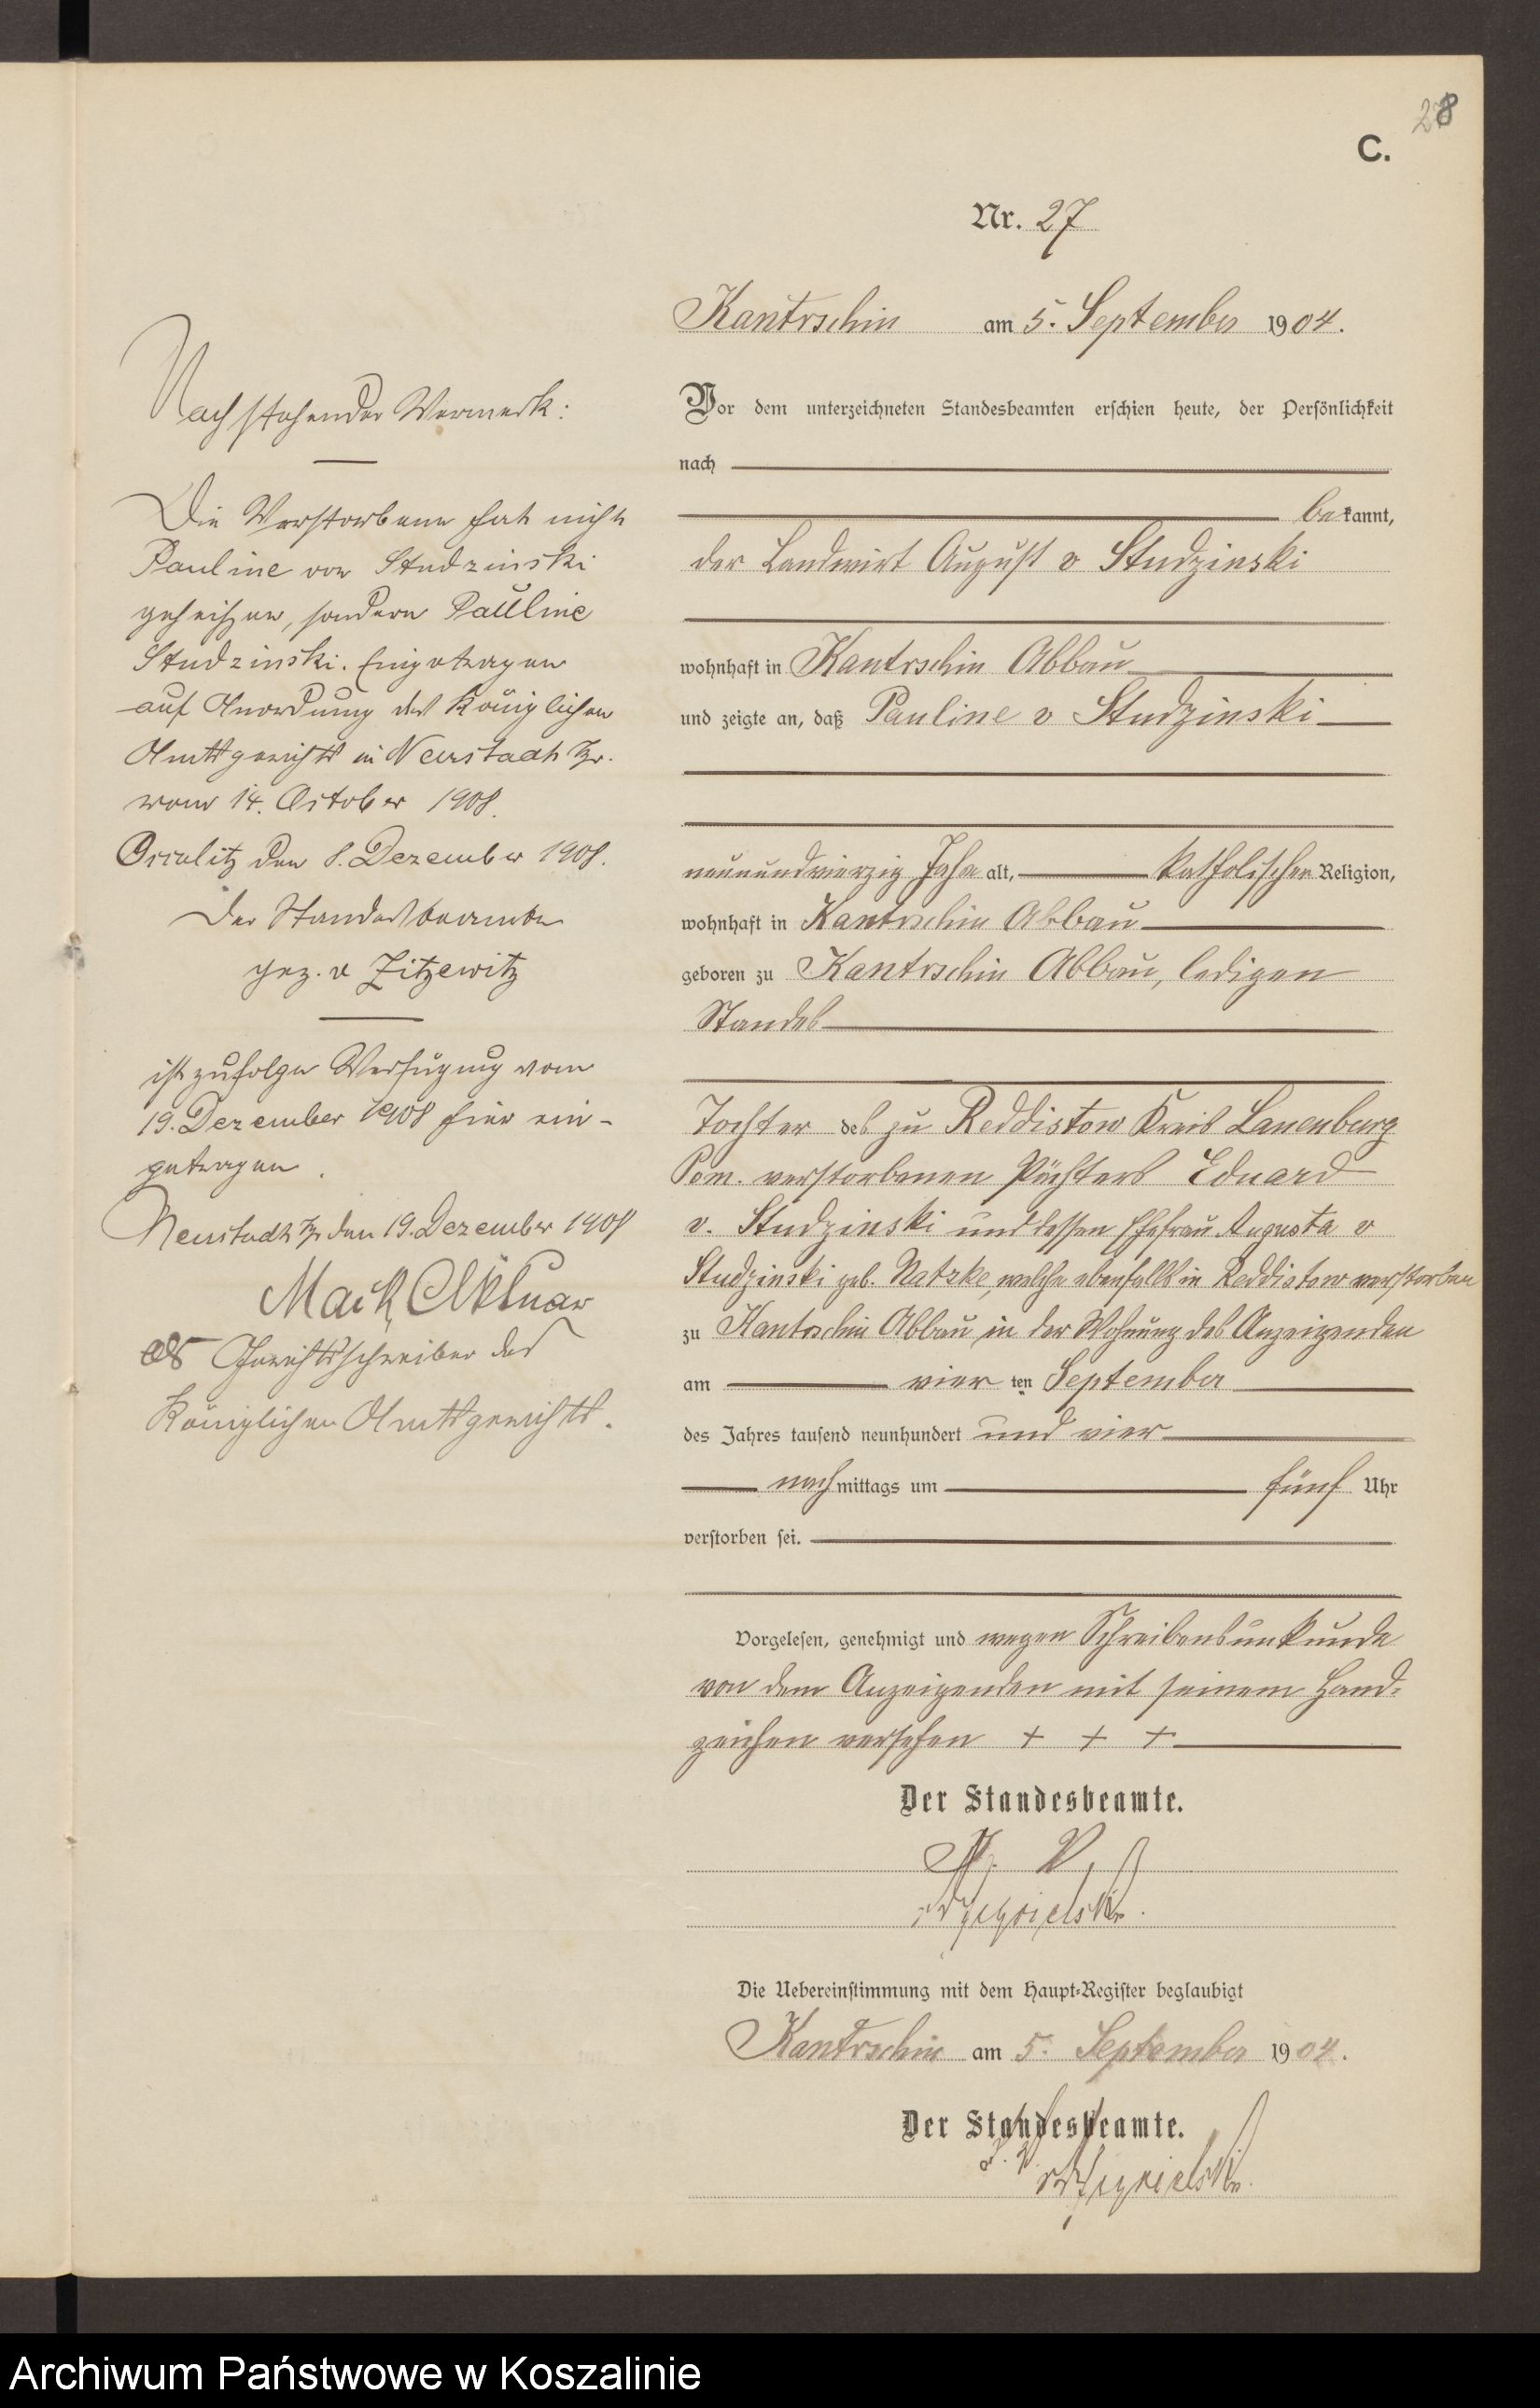 28
C.
Nr. 27
Kantrschin am 5. September 1904.
Vor dem unterzeichneten Standesbeamten erschien heute, der Persönlichkeit
nach
bekannt,
der Landwirt August v Studzinski
wohnhaft in Kantrschin Abbau
und zeigte an, daß Pauline v Studzinski
neunundvierzig Jahre alt, katholischer Religion,
wohnhaft in Kantrschin Abbau
geboren zu Kantrschin Abbau, ledigen
Standes
Tochter des zu Reddistow Kreis Lauenburg
Pom. verstorbenen Pächters Eduard
v. Studzinski und dessen Ehefrau Augusta v
Studzinski geb. Natzke, welche ebenfalls in Reddistow verstorben
zu Kantrschin Abbau in der Wohnung des Anzeigenden
am vier ten September
des Jahres tausend neunhundert und vier
nachmittags um fünf Uhr
verstorben sei.
Vorgelesen, genehmigt und wegen Schreibensunkunde
von dem Anzeigenden mit seinem Hand-
zeichen versehen + + +
Der Standesbeamte.
Die Uebereinstimmung mit dem Haupt-Register beglaubigt
Kantrschin am 5. September 1904.
Der Standesbeamte.
Nachstehender Vermerk:
Die Verstorbene hat nicht
Pauline von Studzinski
geheißen, sondern Pauline
Studzinski. Eingetragen
auf Anordnung des Königlichen
Amtsgerichts in Neustadt
vom 14. October 1908.
den 8. Dezember 1908.
Der Standesbeamte
gez. v Zitzewitz
ist zufolge Verfügung vom
19. Dezember 1908 hier ein-
getragen.
Neustadt den 19. Dezember 1908
Aktuar
als Gerichtsschreiber des
Königlichen Amtsgerichts.
Archiwum Państwowe w Koszalinie